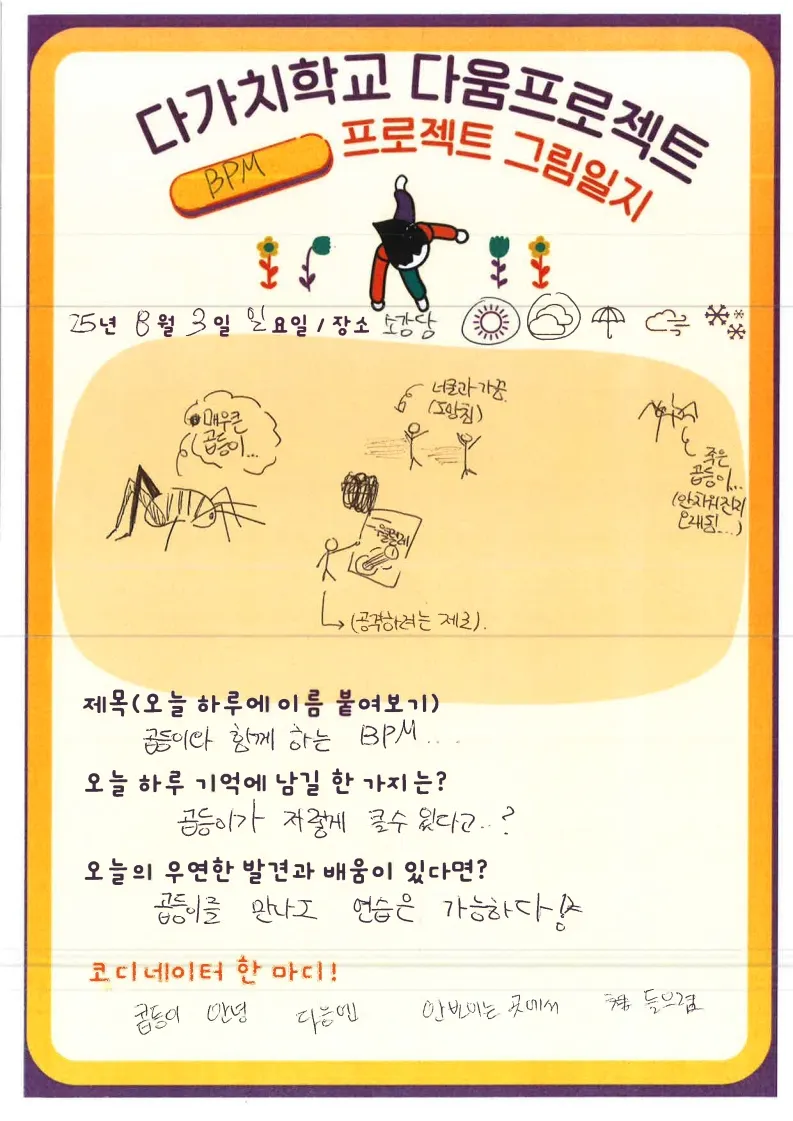 다가치학교 다움프로젝트
프로젝트 그림일지
BPM
25년 8월 3일 일요일 / 장소 소강당
매우큰
곱등이...
너클과 가꿈.
(도망침)
죽은
곱등이...
(안치워진지
오래됨...)
물걸레
(공격하려는 제로).
제목(오늘 하루에 이름 붙여보기)
곱등이와 함께 하는 BPM ....
오늘 하루 기억에 남길 한 가지는?
곱등이가 저렇게 클수 있다고..?
오늘의 우연한 발견과 배움이 있다면?
곱등이를 만나도 연습은 가능하다!
코디네이터 한 마디!
곱등이 안녕 다음엔 안보이는 곳에서